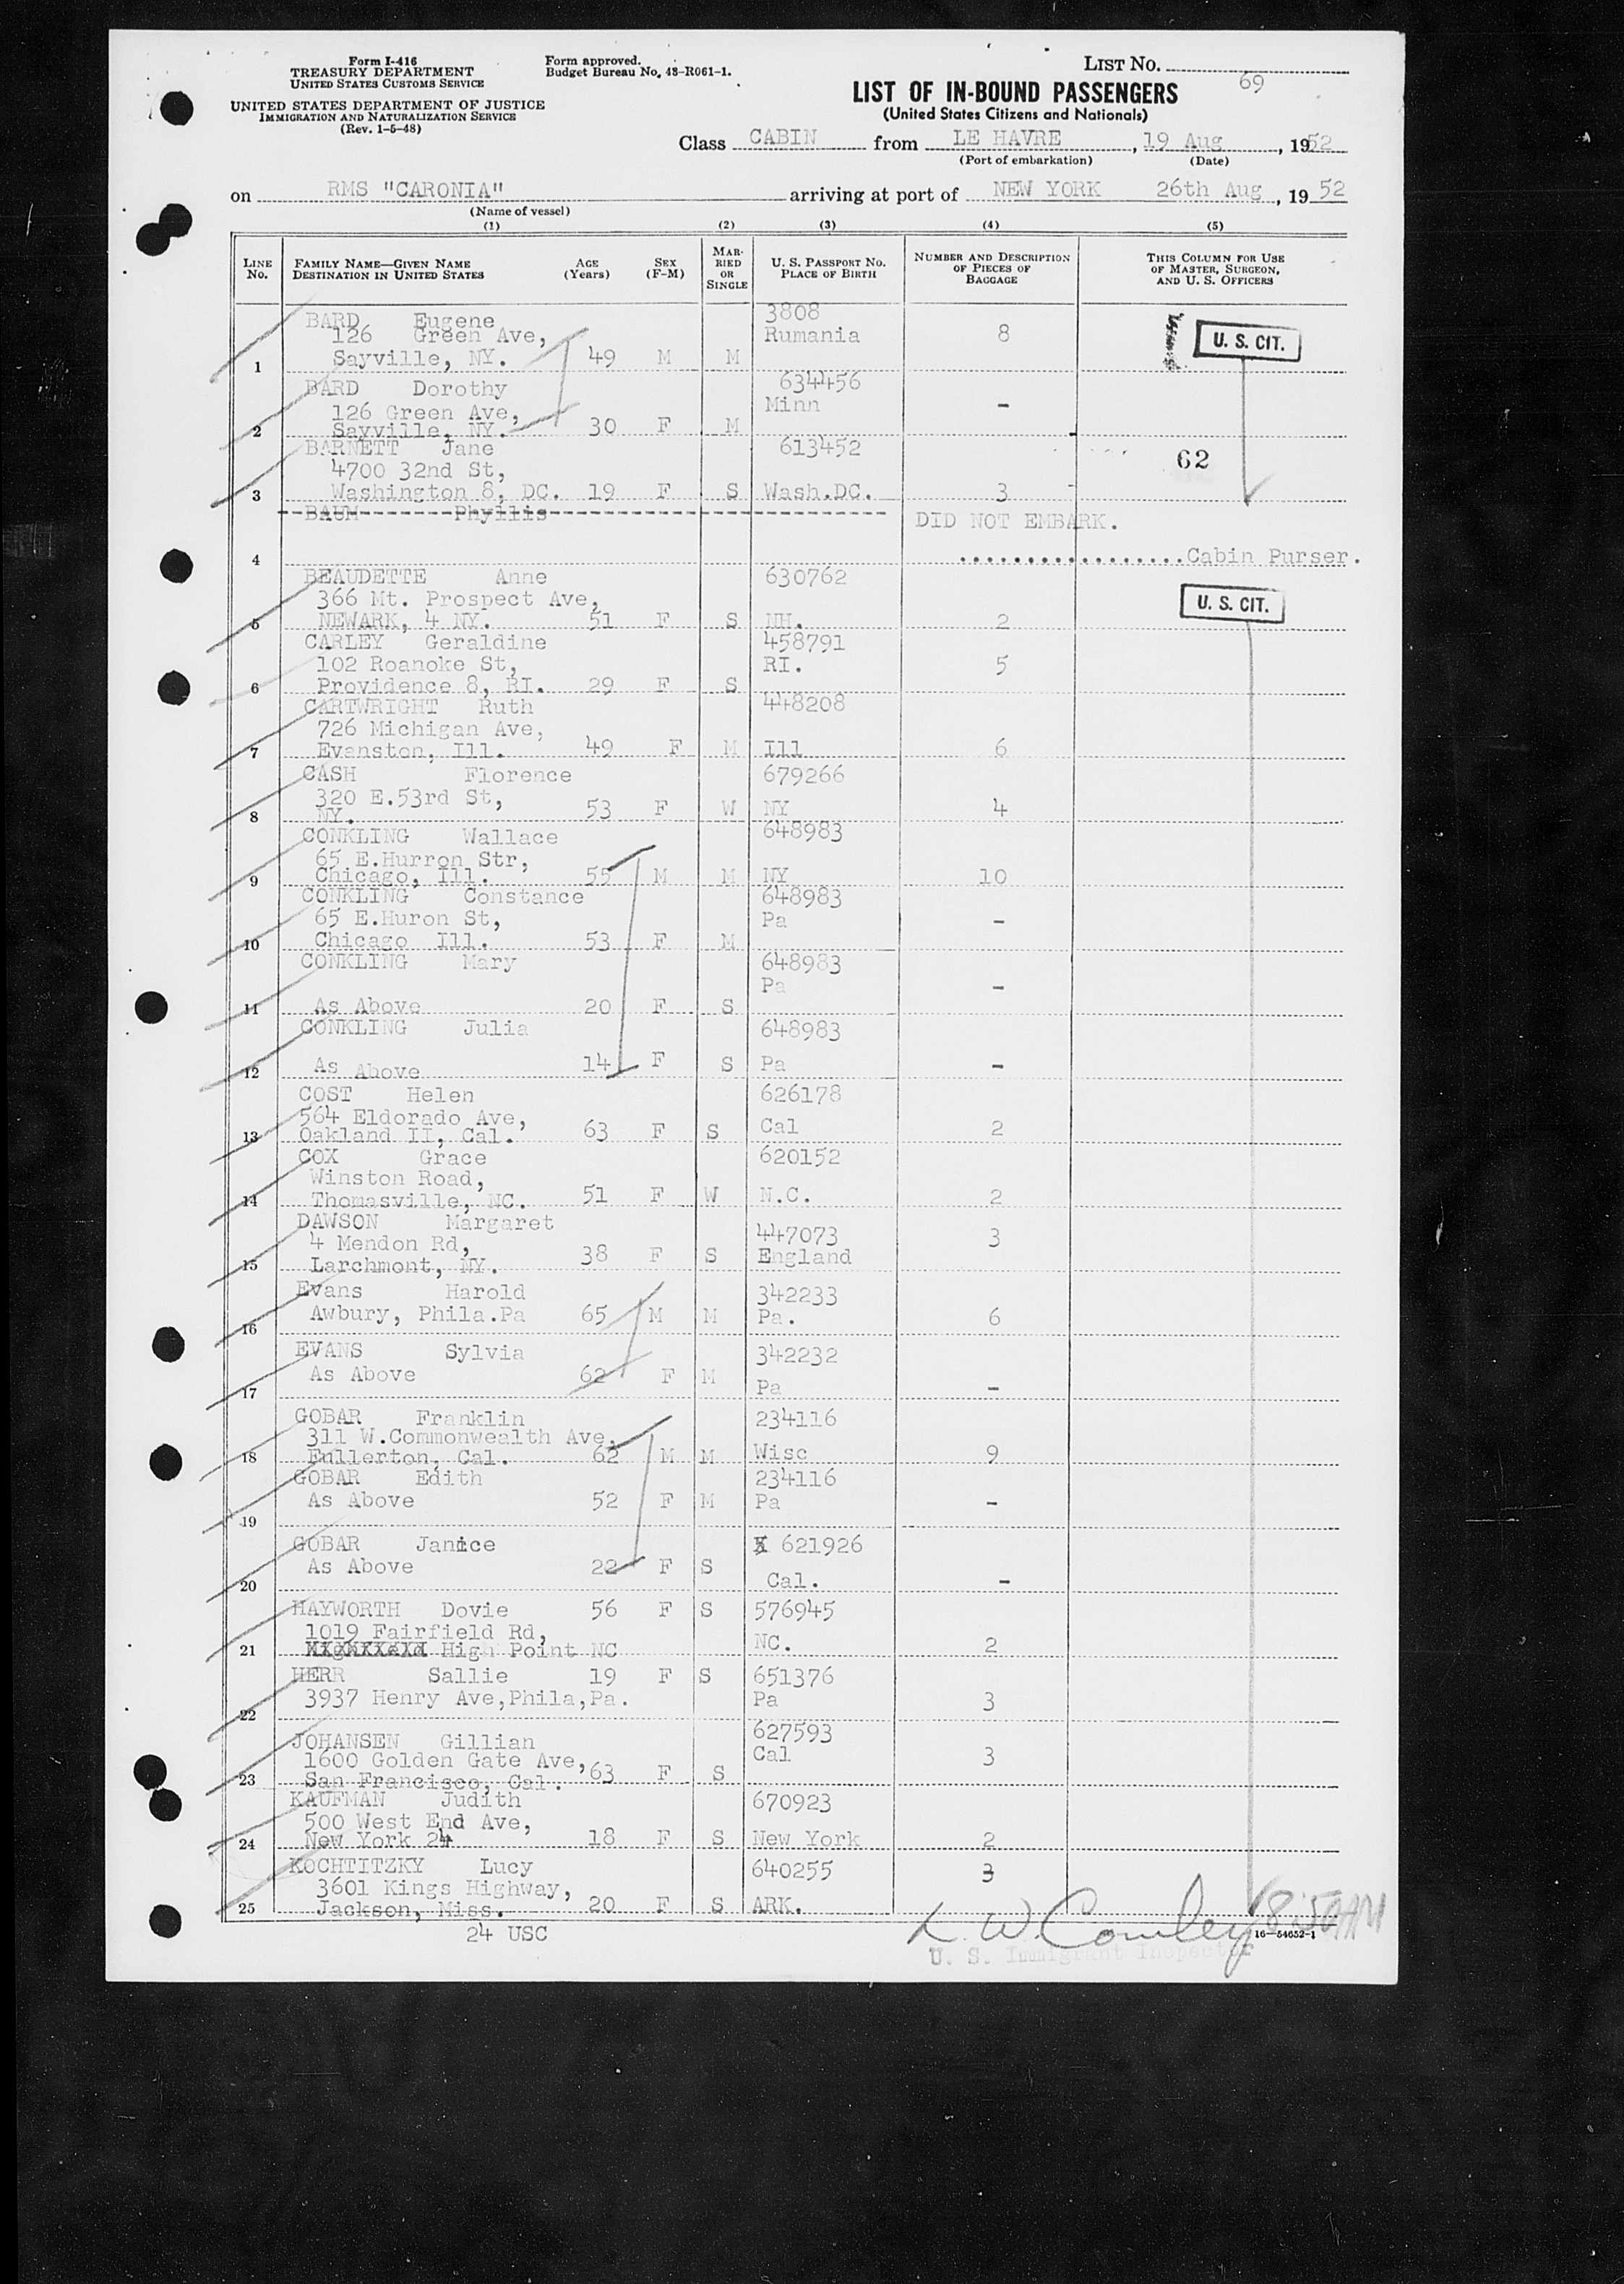 Form I-416
TREASURY DEPARTMENT
UNITED STATES CUSTOMS SERVICE
UNITED STATES DEPARTMENT OF JUSTICE
IMMIGRATION AND NATURALIZATION SERVICE
(Rev. 1-5-48)
Form approved.
Budget Bureau No. 43-R061-1.
LIST NO.
69
LIST OF IN-BOUND PASSENGERS
(United States Citizens and Nationals)
Class CABIN from LE HAVRE, 19 Aug, 1952
(Port of embarkation) (Date)
on RMS "CARONIA" arriving at port of NEW YORK 26th Aug, 1952
(Name of vessel)
(1) (2) (3) (4) (5)
LINE No.
FAMILY NAME—GIVEN NAME
DESTINATION IN UNITED STATES
AGE (Years)
SEX (F-M)
MARRIED OR SINGLE
U. S. PASSPORT NO.
PLACE OF BIRTH
NUMBER AND DESCRIPTION OF PIECES OF BAGGAGE
THIS COLUMN FOR USE OF MASTER, SURGEON, AND U. S. OFFICERS
BARD Eugene 3808
126 Green Ave, Rumania 8 U. S. CIT.
1 Sayville, NY. 49 M M
BARD Dorothy 634456
126 Green Ave, Minn -
2 Sayville, NY. 30 F M
BARNETT Jane 613452 62
4700 32nd St,
3 Washington 8, DC. 19 F S Wash.DC. 3
BAUM Phyllis DID NOT EMBARK.
4 ..................Cabin Purser.
BEAUDETTE Anne 630762
366 Mt. Prospect Ave, U. S. CIT.
5 NEWARK, 4 NY. 51 F S NH. 2
CARLEY Geraldine 458791
102 Roanoke St, RI. 5
6 Providence 8, RI. 29 F S
CARTWRIGHT Ruth 448208
726 Michigan Ave,
7 Evanston, Ill. 49 F M Ill 6
CASH Florence 679266
320 E.53rd St, 53 F W NY 4
8 NY.
CONKLING Wallace 648983
65 E.Hurron Str,
9 Chicago, Ill. 55 M M NY 10
CONKLING Constance 648983
65 E.Huron St, Pa -
10 Chicago Ill. 53 F M
CONKLING Mary 648983
Pa -
11 As Above 20 F S
CONKLING Julia 648983
12 As Above 14 F S Pa -
COST Helen 626178
564 Eldorado Ave, Cal 2
13 Oakland II, Cal. 63 F S
COX Grace 620152
Winston Road,
14 Thomasville, NC. 51 F W N.C. 2
DAWSON Margaret 447073 3
4 Mendon Rd, 38 F S England
15 Larchmont, NY.
Evans Harold 342233
Awbury, Phila.Pa 65 M M Pa. 6
16
EVANS Sylvia 342232
As Above 62 F M Pa -
17
GOBAR Franklin 234116
311 W.Commonwealth Ave,
18 Fullerton, Cal. 62 M M Wisc 9
GOBAR Edith 234116
As Above 52 F M Pa -
19
GOBAR Janice 621926
As Above 22 F S Cal. -
20
HAYWORTH Dovie 56 F S 576945
1019 Fairfield Rd, NC. 2
21 High Point NC
HERR Sallie 19 F S 651376
3937 Henry Ave,Phila,Pa. Pa 3
22
JOHANSEN Gillian 627593
1600 Golden Gate Ave, Cal 3
23 San Francisco, Cal. 63 F S
KAUFMAN Judith 670923
500 West End Ave,
24 New York 24 18 F S New York 2
KOCHTITZKY Lucy 640255 3
3601 Kings Highway,
25 Jackson, Miss. 20 F S ARK.
24 USC
L. W. Cowley 8:50 AM
16—54652-1
U. S. Immigrant Inspector